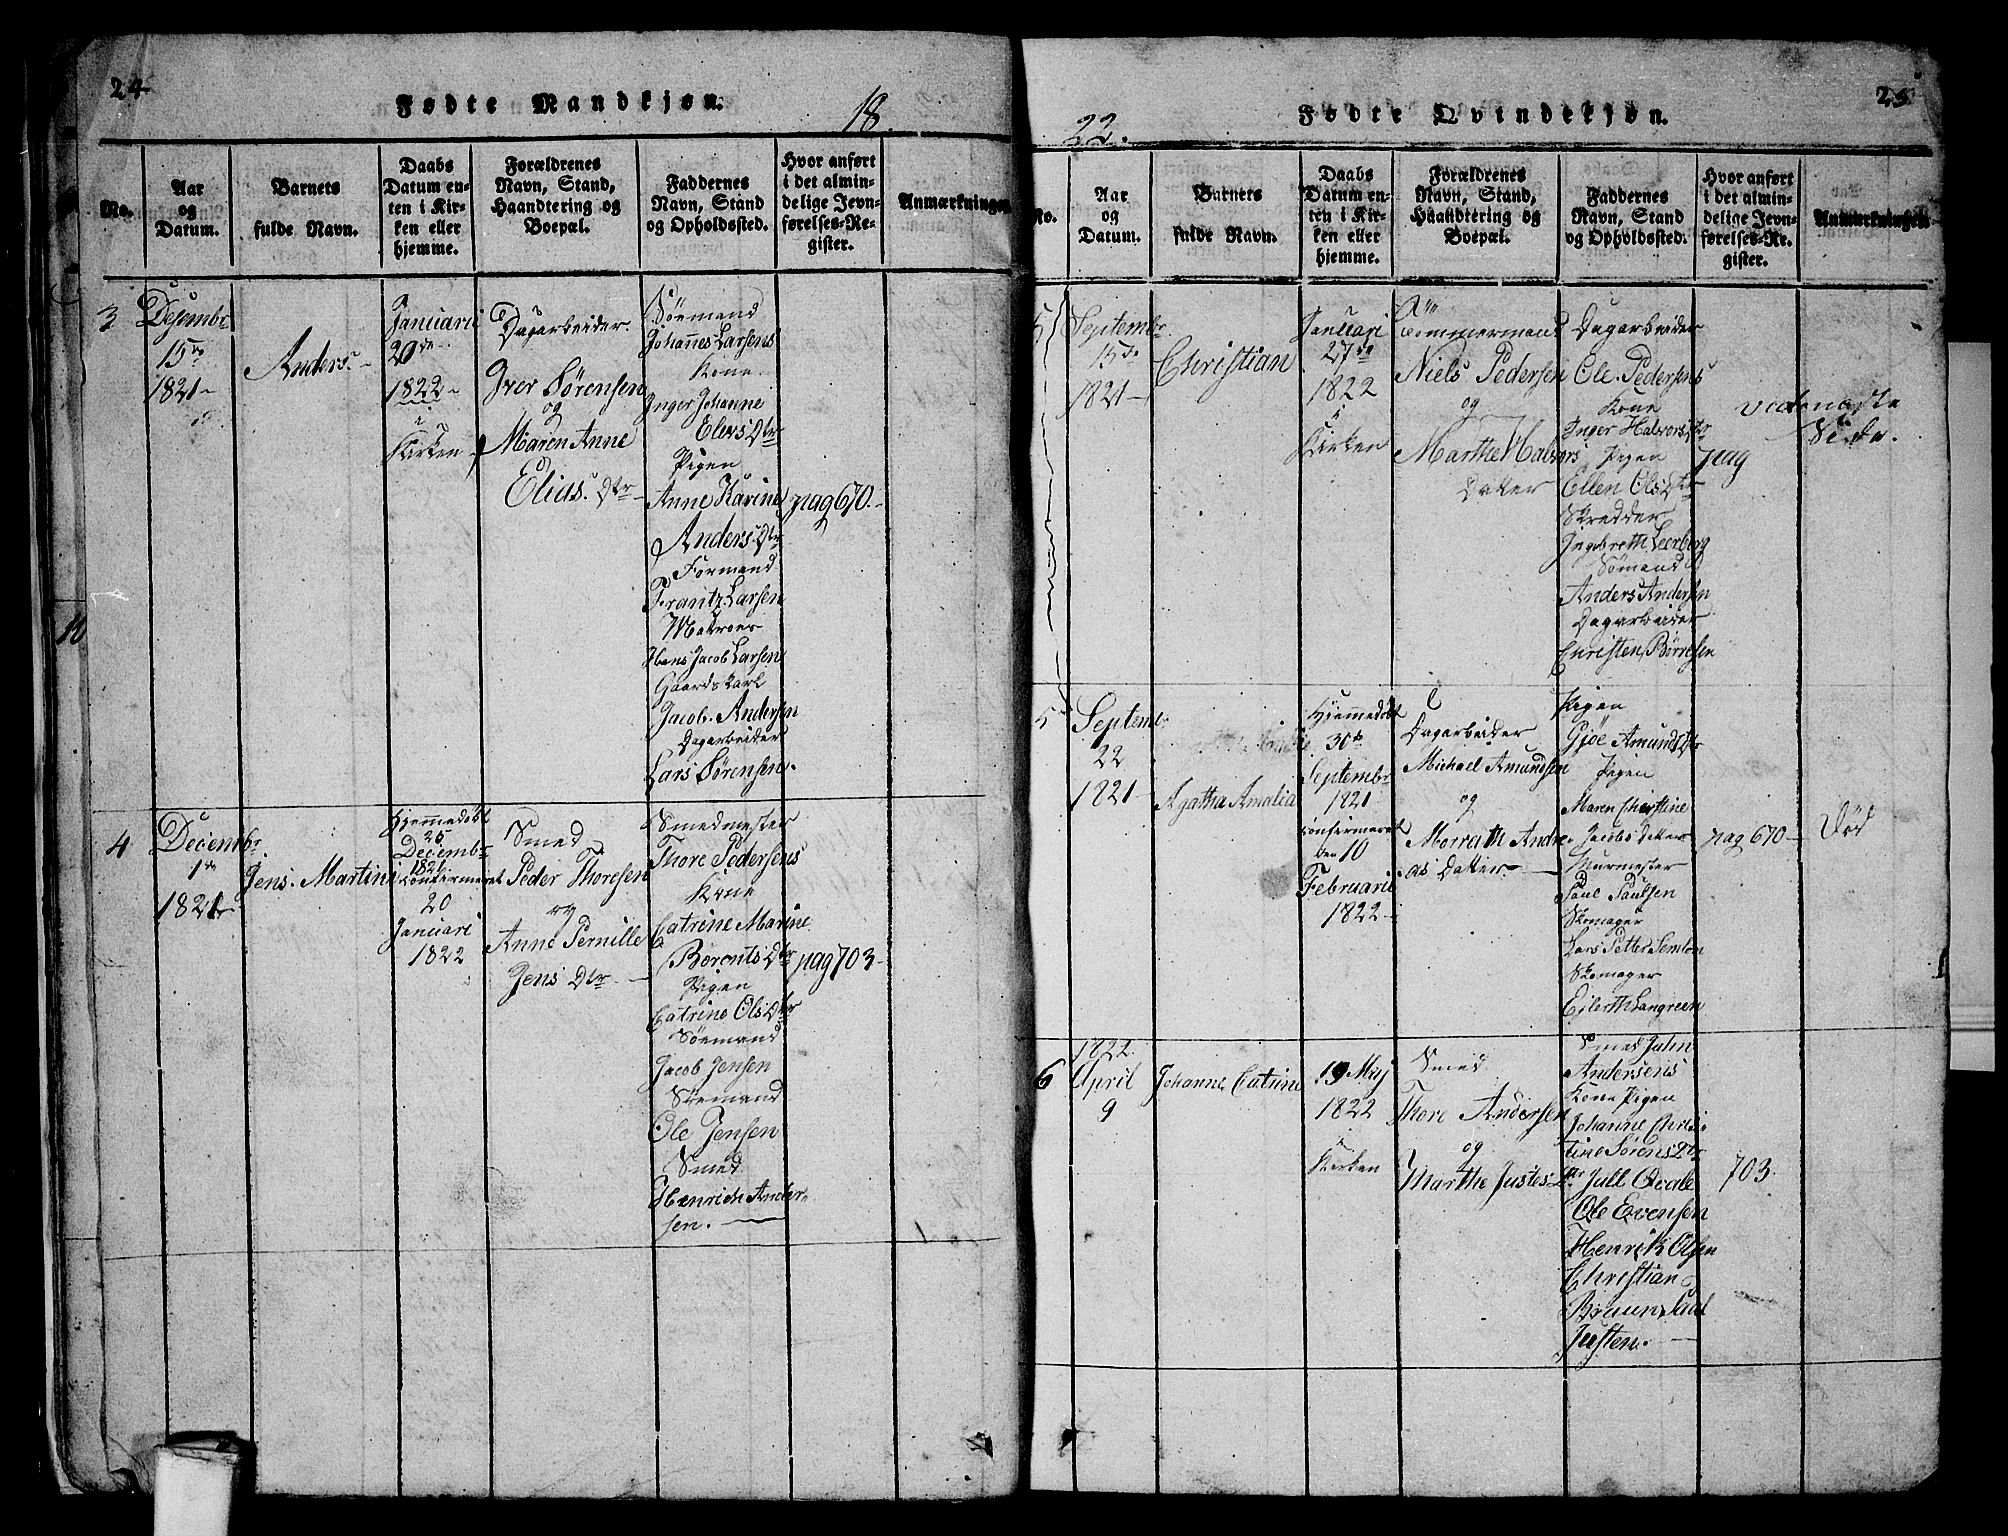 24
Fødte Mandkjøn.
18
No.
Aar
og
Datum.
Barnets
fulde Navn.
Daabs
Datum en-
ten i Kir-
ken eller
hjemme.
Forældrenes
Navn, Stand,
Haandtering og
Boepæl.
Faddernes
Navn, Stand
og Opholdssted.
Hvor anført
i det almin-
delige Jevn-
førelses-Re-
gister.
Anmærkninger.
3
Desembr
15de
1821
Anders
Januari
20de
1822
i
Kirken
Dagarbeider
Iver Sørensen
og
Maren Anne
Elias Dtr
Sømand
Johannes Larsens
Kone
Inger Johanne
Elers Dtr
Pigen
Anne Karine
Anders Dtr
Formand
Frantz Larsen
Matroes
Hans Jacob Larsen
Gaardskarl
Jacob Andersen
Dagarbeider
Lars Sørensen.
pag 670
4
Decembr
1de
1821
Jens Martin
Hjemmedøbt
25
Decembr
1821
Confirmeret
20
Januari
1822
Smed
Peder Thoresen
og
Anne Pernille
Jens Dtr
Smedmester
Thore Pedersens
Kone
Catrine Marine
Berents Dtr
Pigen
Catrine Ols Dtr
Sømand
Jacob Jensen
Sømand
Ole Jensen
Smed
Henrich Ander-
sen.
pag 703
10
25
22.
Fødte Qvindekjøn.
No.
Aar
og
Datum.
Barnets
fulde Navn.
Daabs
Datum en-
ten i Kir-
ken eller
hjemme.
Forældrenes
Navn, Stand,
Haandtering og
Boepæl.
Faddernes
Navn, Stand
og Opholdssted.
Hvor anført
i det almin-
delige Jevn-
førelses-Re-
gister.
Anmærkninger.
5
Septembr
15de
1821
Christian
Januari
27de
1822
i
Kirken
Tømmermand
Niels Pedersen
og
Marthe Halvors
Datter
Dagarbeider
Ole Pedersens
Kone
Inger Halvors Dtr
Pigen
Ellen Ols Dtr
Skredder
Ingebreth Leerberg
Sømand
Anders Andersen
Dagarbeider
Christen Børresen
pag
ved næste
Side.
5
Septemr
22
1821
Agatha Amalia
Hjemmedøbt
30te
Septembr
1821
Confirmeret
den 10
Februarie
1822
Dagarbeider
Michael Amundsen
og
Morrath Andre
as Datter
Pigen
Gjøe Amunds Dtr
Pigen
Maren Christine
Jacobs Datter
Murmester
Paul Paulsen
Skomager
Lars Petter Semlon
Skomager
Eilerth Langreen
pag 670
Død
6
1822
April
9
Johanne Catrine
19 May
1822
i
Kirken
Smed
Thore Andersen
og
Marthe Justes Dtr
Smed John
Andersens
Kone Pigen
Johanne Chris-
tine Sørens Dtr
Jull Qvale
Ole Evensen
Henrik Olsen
Christian
Braun
Justen.
703